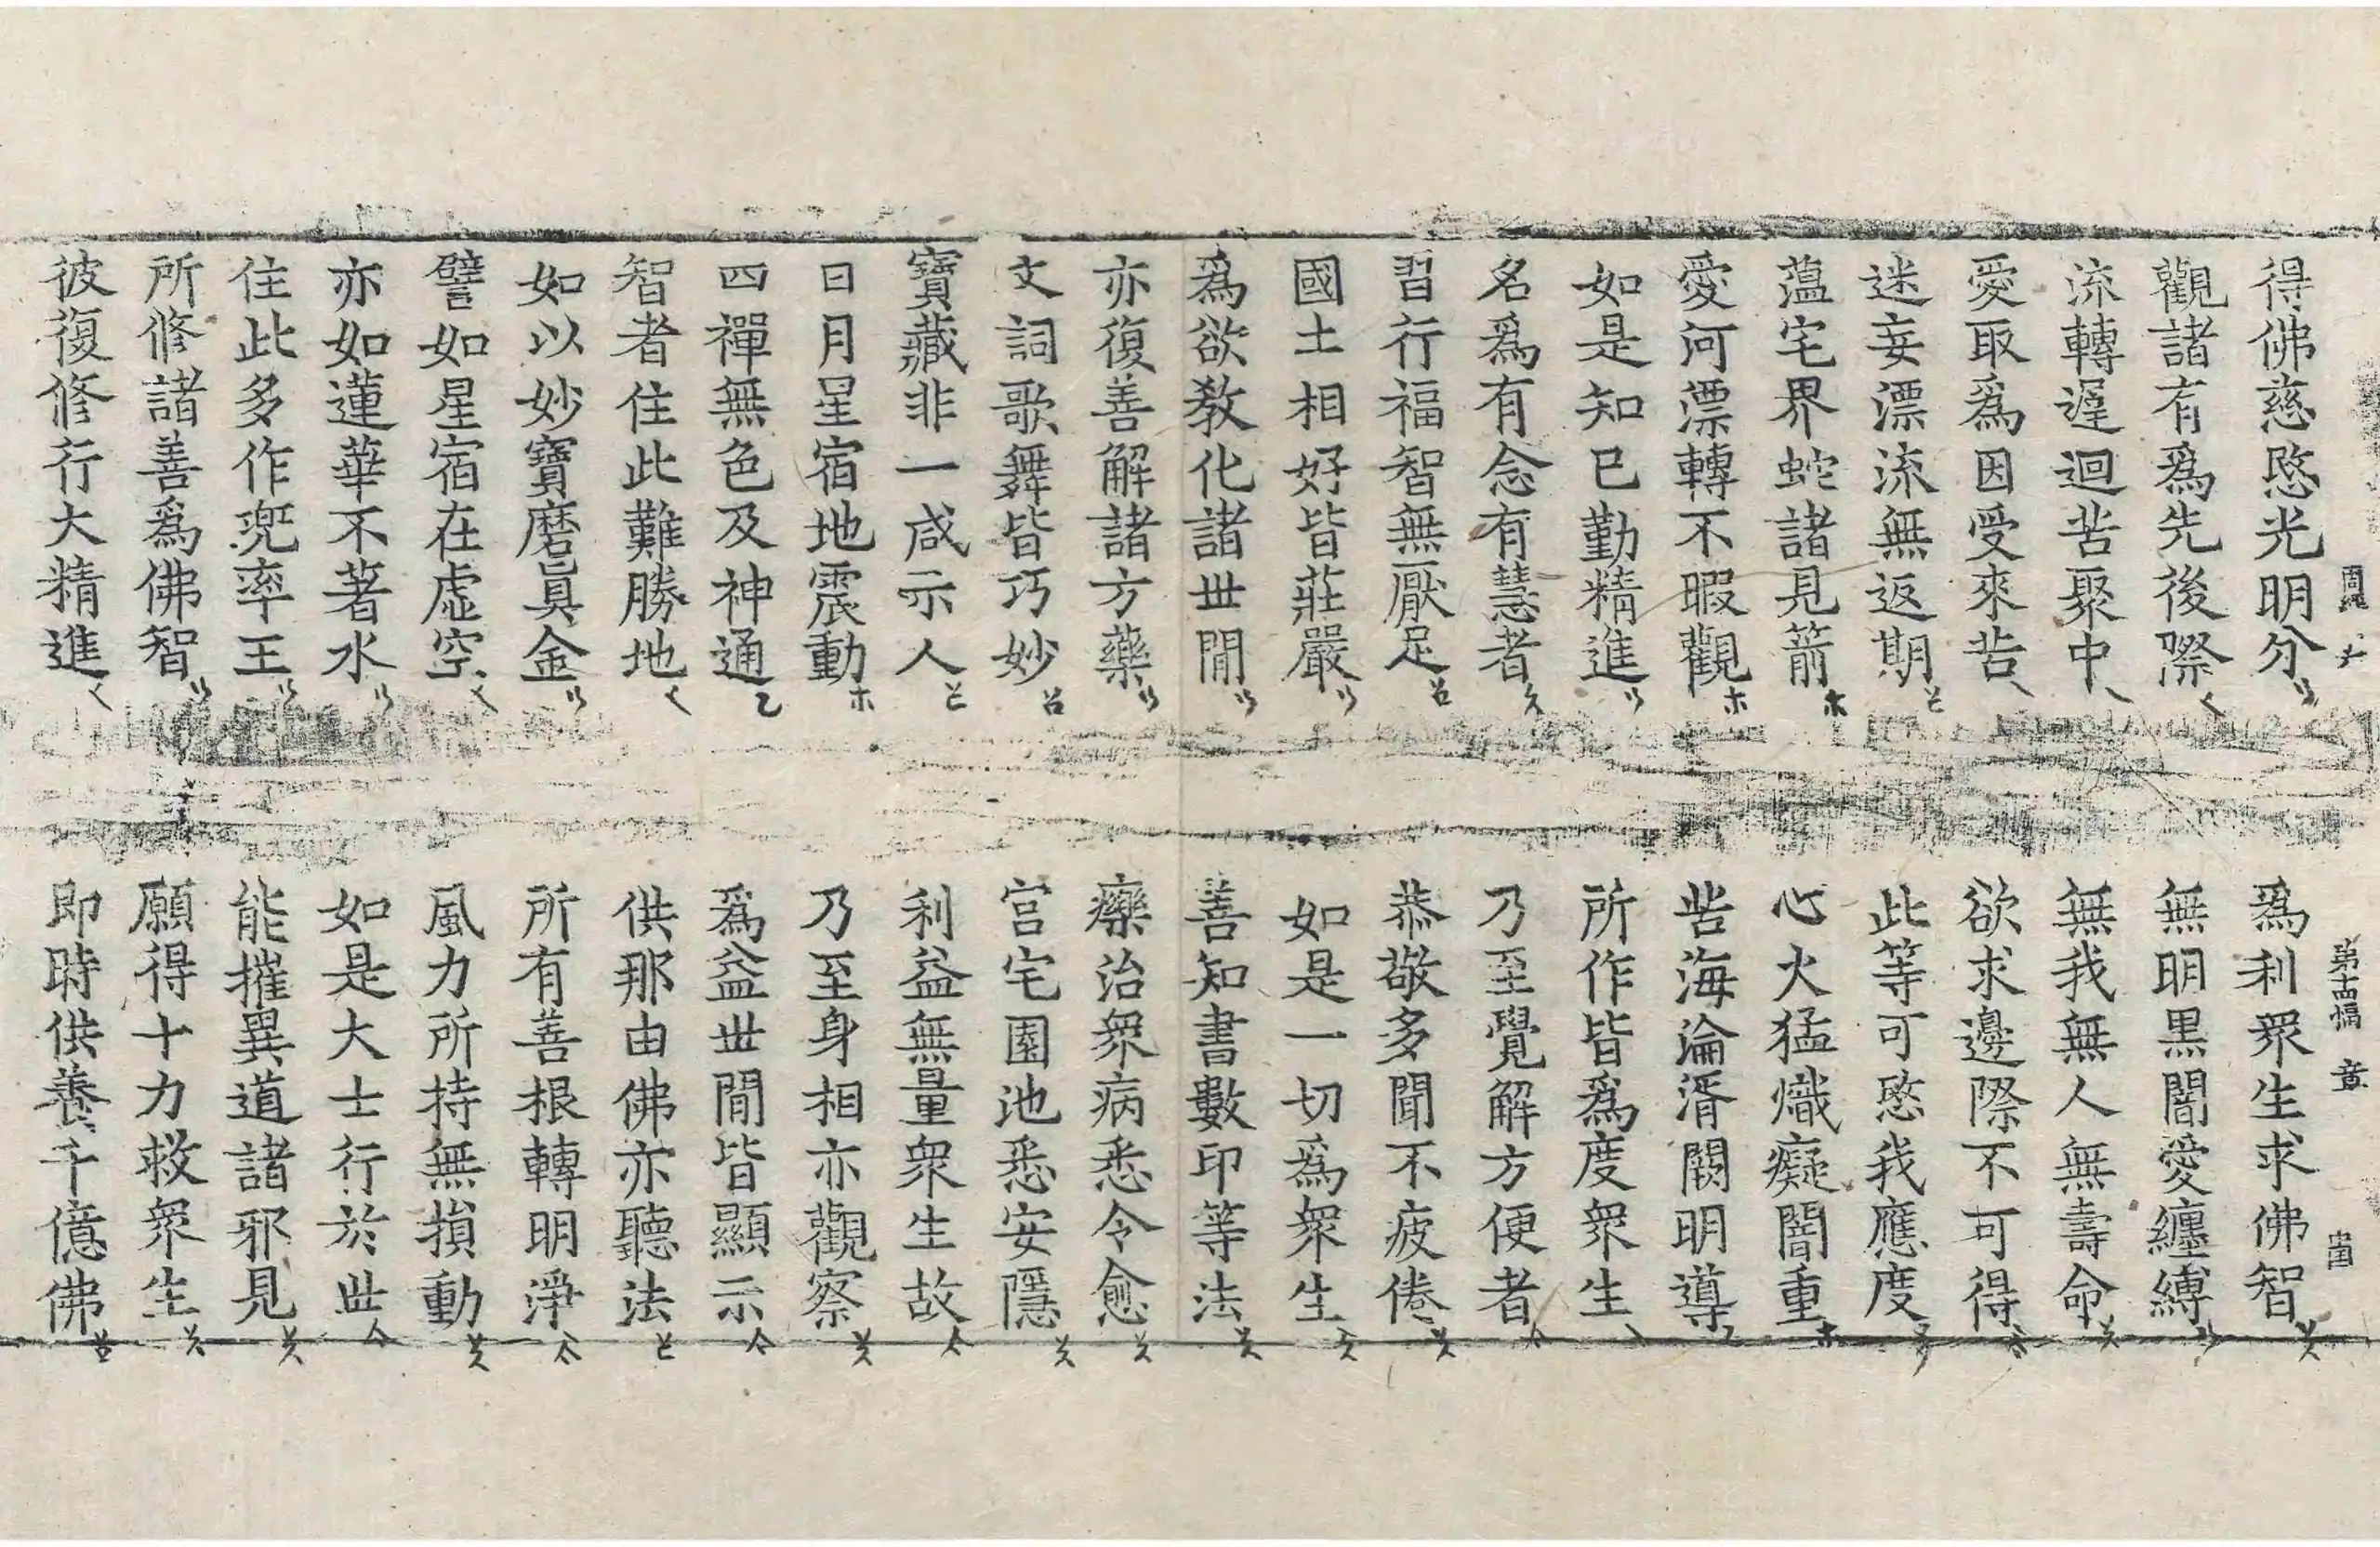 第十四幅 章
得佛慈愍光明分 爲利衆生求佛智
觀諸有爲先後際 無明黑闇愛纏縛
流轉遲迴苦聚中 無我無人無壽命
愛取爲因受來苦 欲求邊際不可得
迷妄漂流無返期 此等可愍我應度
薀宅界蛇諸見箭 心火猛熾癡闇重
愛河漂轉不暇觀 苦海淪湑闕明導
如是知已勤精進 所作皆爲度衆生
名爲有念有慧者 乃至覺解方便者
習行福智無厭足 恭敬多聞不疲倦
國土相好皆莊嚴 如是一切爲衆生
爲欲教化諸世間 善知書數印等法
亦復善解諸方藥 療治衆病悉令愈
文詞歌舞皆巧妙 宮宅園池悉安隱
寶藏非一咸示人 利益無量衆生故
日月星宿地震動 乃至身相亦觀察
四禪無色及神通 爲益世間皆顯示
智者住此難勝地 供那由佛亦聽法
如以妙寶磨眞金 所有善根轉明淨
譬如星宿在虛空 風力所持無損動
亦如蓮華不著水 如是大士行於世
住此多作兜率王 能摧異道諸邪見
所修諸善爲佛智 願得十力救衆生
彼復修行大精進 即時供養千億佛